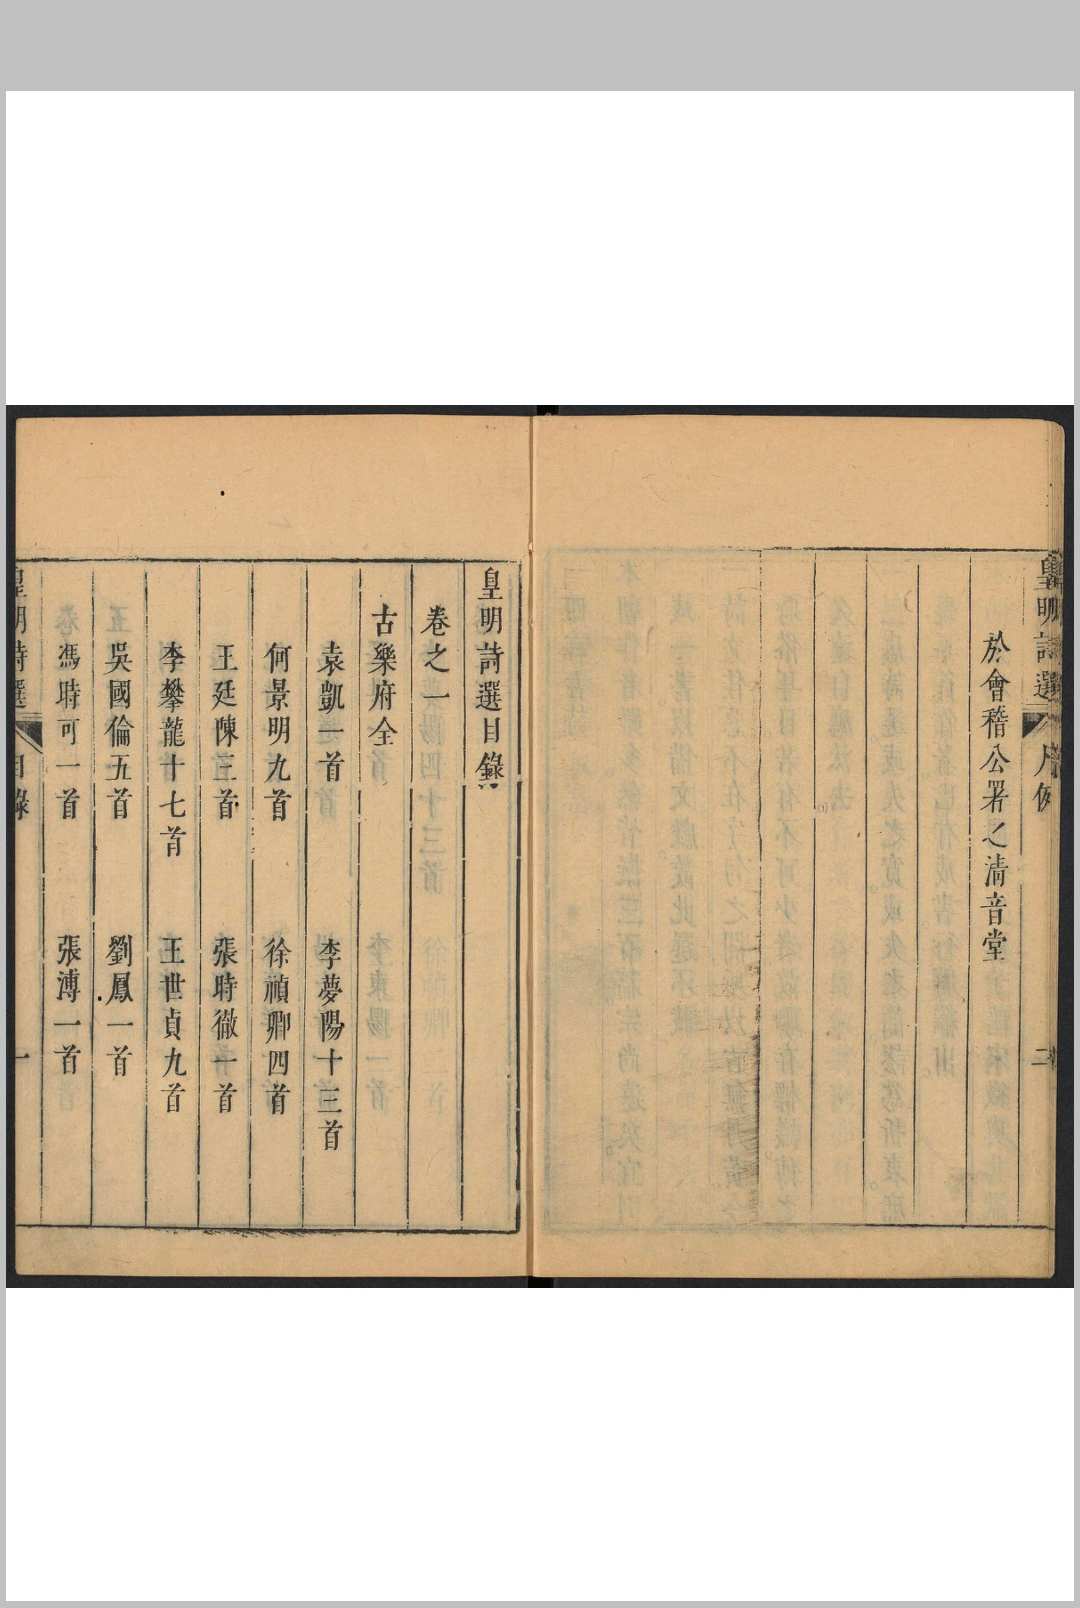 皇明詩選
凡例
二
於會稽公署之清音堂
皇明詩選目錄
卷之一
古樂府全
袁凱一首 李夢陽十三首
何景明九首 徐禎卿四首
王廷陳三首 張時徹一首
李攀龍十七首 王世貞九首
吳國倫五首 劉鳳一首
馮時可一首 張溥一首
皇明詩選
目錄
一